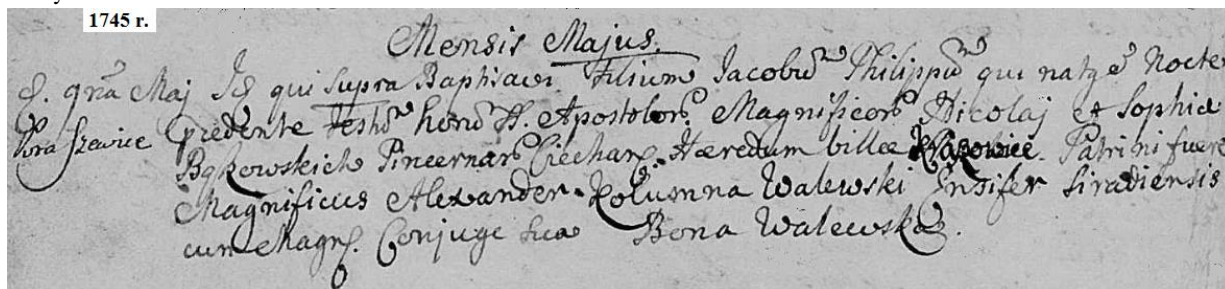 1745 r.
Mensis Majus.
Maj qui supra Baptisavi Filium Jacobũ Philippũ qui natq̃ ẽ Nocte
hor̃ Apostolor̃. Magnificor̃ Nicolaj et Sophiæ
Bąkowskich Pincernar̃ Hæredum Villæ Patrini fuere
Magnificus Alexander Kolumna Walewski Ensifer Siradiensis
cum Magnf. Conjuge sua Bona Walewska.